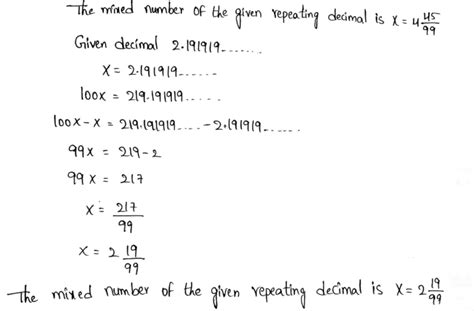 The mixed number of the given repeating decimal is x = 4 45/99
Given decimal 2.191919.......
x = 2.191919......
100x = 219.191919.....
100x - x = 219.191919.... - 2.191919......
99x = 219 - 2
99x = 217
x = 217/99
x = 2 19/99
The mixed number of the given repeating decimal is x = 2 19/99